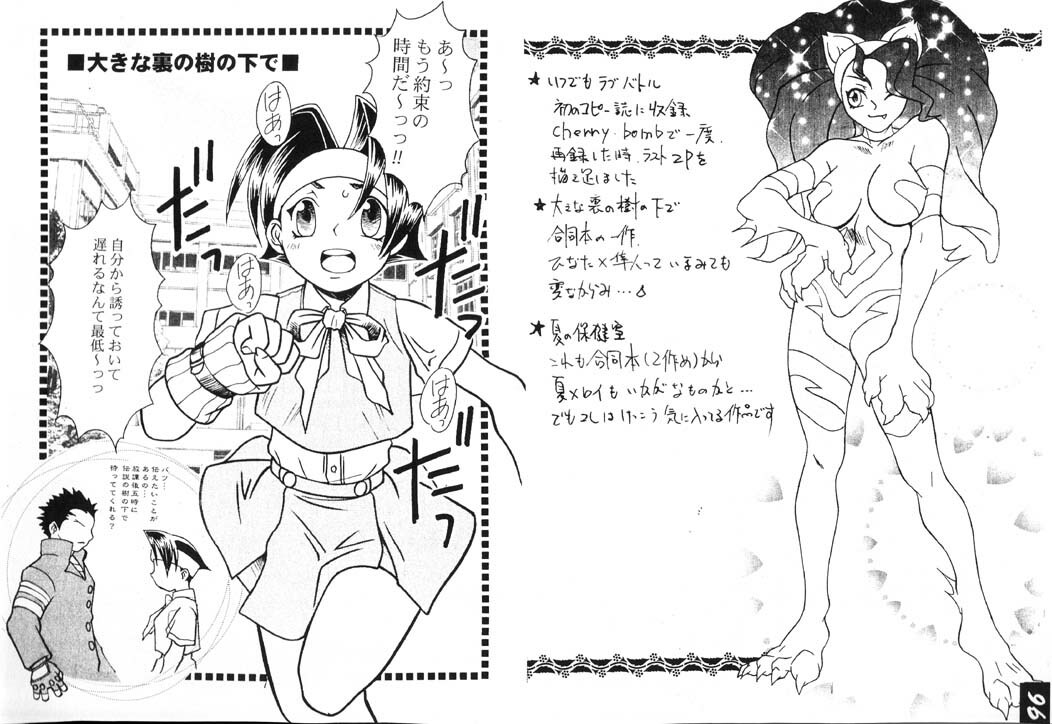 ★いつでもラブバトル
初のコピー誌に収録
cherry・bombで一度、
再録した時、ラスト2Pを
描き足しました
★大きな裏の樹の下で
合同本の一作.
ひなた×隼人っていまみても
変ながらみ…
★夏の保健室
これも合同本(2作め)から
夏×ロイもいかがなものかと…
でもコレはけっこう気に入ってる作品です
96
■大きな裏の樹の下で■
あ〜っ
もう約束の
時間だ〜っっ!!
はあっ
はあっ
はあっ
だっ
だっ
だっ
自分から誘っておいて
遅れるなんて最低〜っっ
バツ…
伝えたいことが
あるの…
放課後五時に
伝説の樹の下で
待っててくれる?